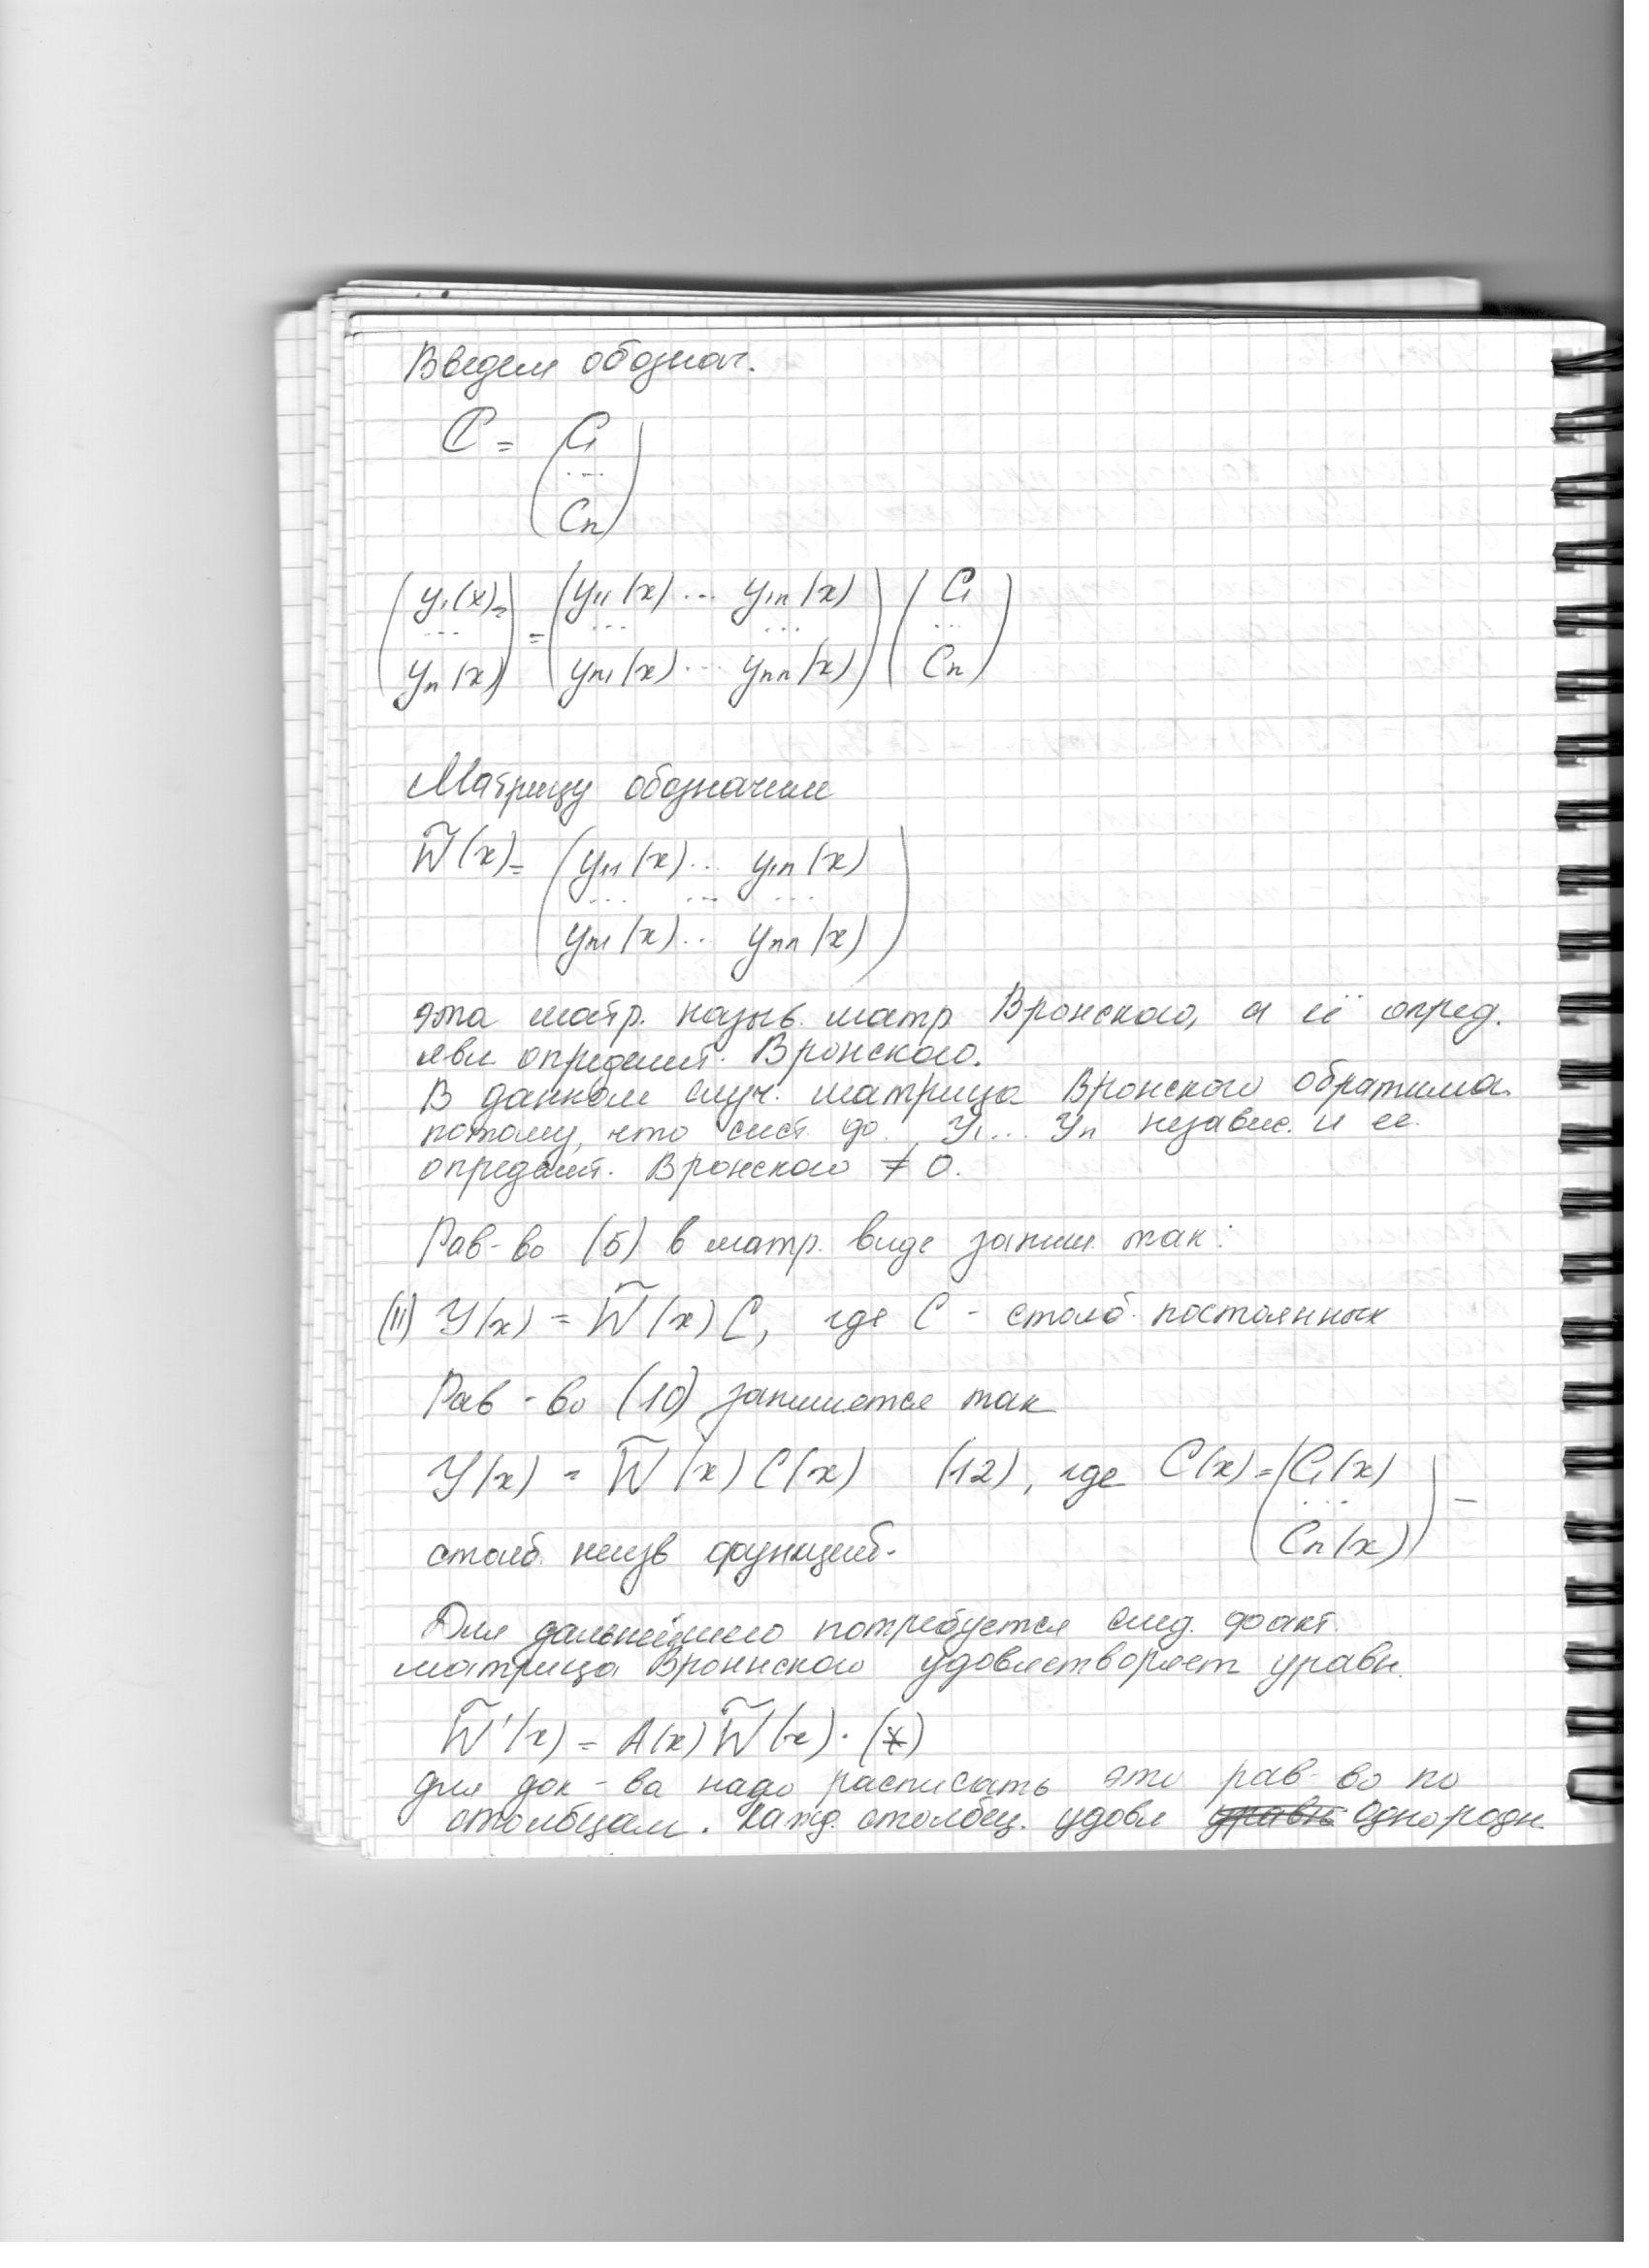 Введем обознач.
C = (C1
...
Cn)
(y1(x) = (y11(x) ... y1n(x)) (C1
... = ... ... ...
yn(x)) yn1(x) ... ynn(x)) Cn)
Матрицу обозначим
W̃(x) = (y11(x) ... y1n(x)
... ... ...
yn1(x) ... ynn(x))
эта матр. назыв. матр Вронского, а её опред.
явл определит. Вронского.
В данном случ. матрица Вронского обратима
потому, что сист. до y1 ... yn независ. и ее
определит. Вронского ≠ 0.
Рав-во (5) в матр. виде запиш так:
(11) Y(x) = W̃(x) C, где C - столб. постоянных
Рав-во (10) запишется так
Y(x) = W̃(x) C(x) (12), где C(x) = (C1(x)
... –
Cn(x))
столб. неизв функций.
Для дальнейшего потребуется след. факт.
матрица Вроннского удовлетворяет уравн.
W̃'(x) = A(x) W̃(x). (*)
для док-ва надо расписать это рав-во по
столбцам. Кажд. столбец. удовл уравн однородн